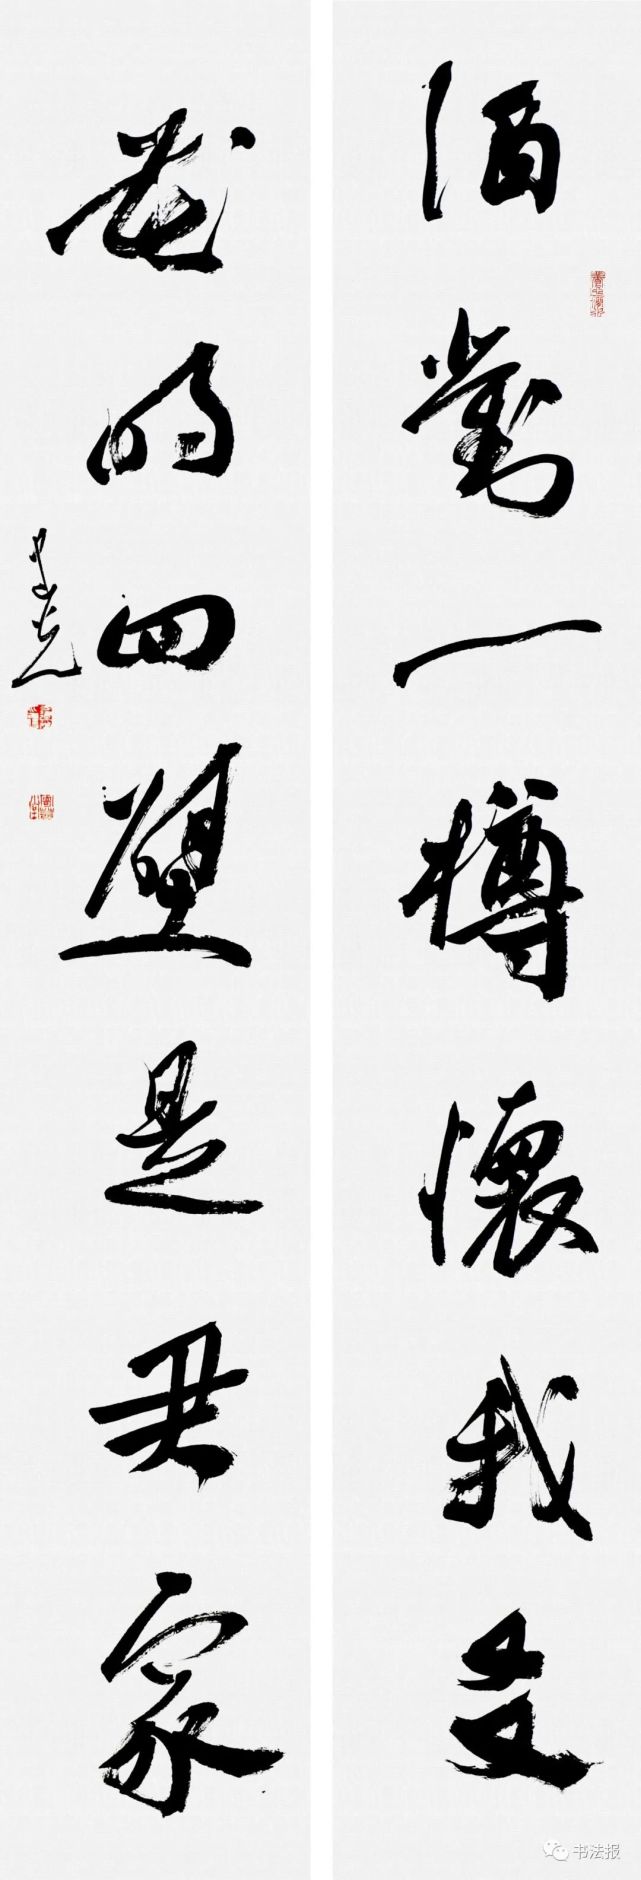 酒對一樽懷我友
花明四壁是君家
书法报